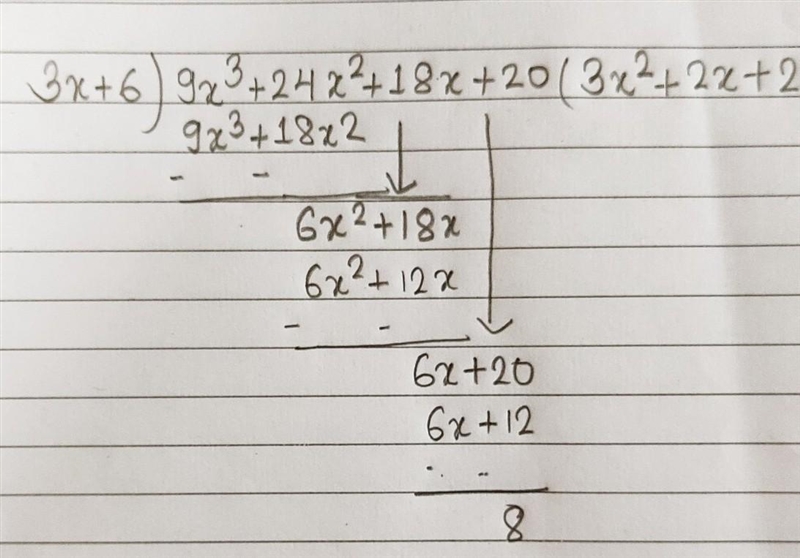 3x+6)9x³+24x²+18x+20(3x²+2x+2
9x³+18x2
- -
6x²+18x
6x²+12x
- -
6x+20
6x+12
- -
8